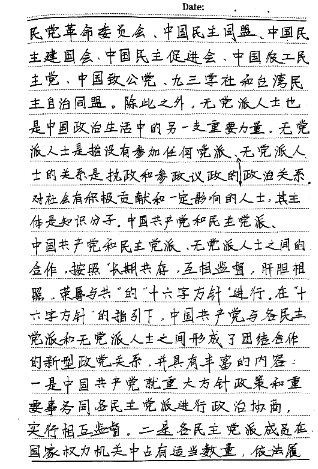 Date:
民党革命委员会、中国民主同盟、中国民
主建国会、中国民主促进会、中国农工民
主党、中国致公党、九三学社和台湾民
主自治同盟。除此之外，无党派人士也
是中国政治生活中的另一支重要力量。无党
派人士是指没有参加任何党派、无党派人
士的关系是执政和参政议政的政治关系。
对社会有积极贡献和一定影响的人士，其主
体是知识分子。中国共产党和民主党派、
中国共产党和民主党派、无党派人士之间的
合作，按照"长期共存，互相监督，肝胆相
照，荣辱与共"的"十六字方针"进行。在"十
六字方针"的指引下，中国共产党与各民主
党派和无党派人士之间形成了团结合作
的新型政党关系，并具有丰富的内容：
一是中国共产党就重大方针政策和重
要事务同各民主党派进行政治协商，
实行相互监督。二是各民主党派成员在
国家权力机关中占有适当数量，依法履